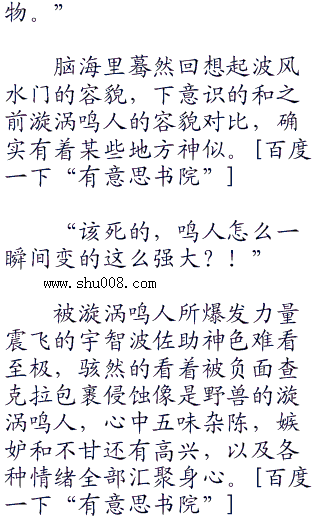 物。”
脑海里蓦然回想起波风
水门的容貌，下意识的和之
前漩涡鸣人的容貌对比，确
实有着某些地方神似。[百度
一下“有意思书院”]
“该死的，鸣人怎么一
瞬间变的这么强大？！”
www.shu008.com
被漩涡鸣人所爆发力量
震飞的宇智波佐助神色难看
至极，骇然的看着被负面查
克拉包裹侵蚀像是野兽的漩
涡鸣人，心中五味杂陈，嫉
妒和不甘还有高兴，以及各
种情绪全部汇聚身心。[百度
一下“有意思书院”]